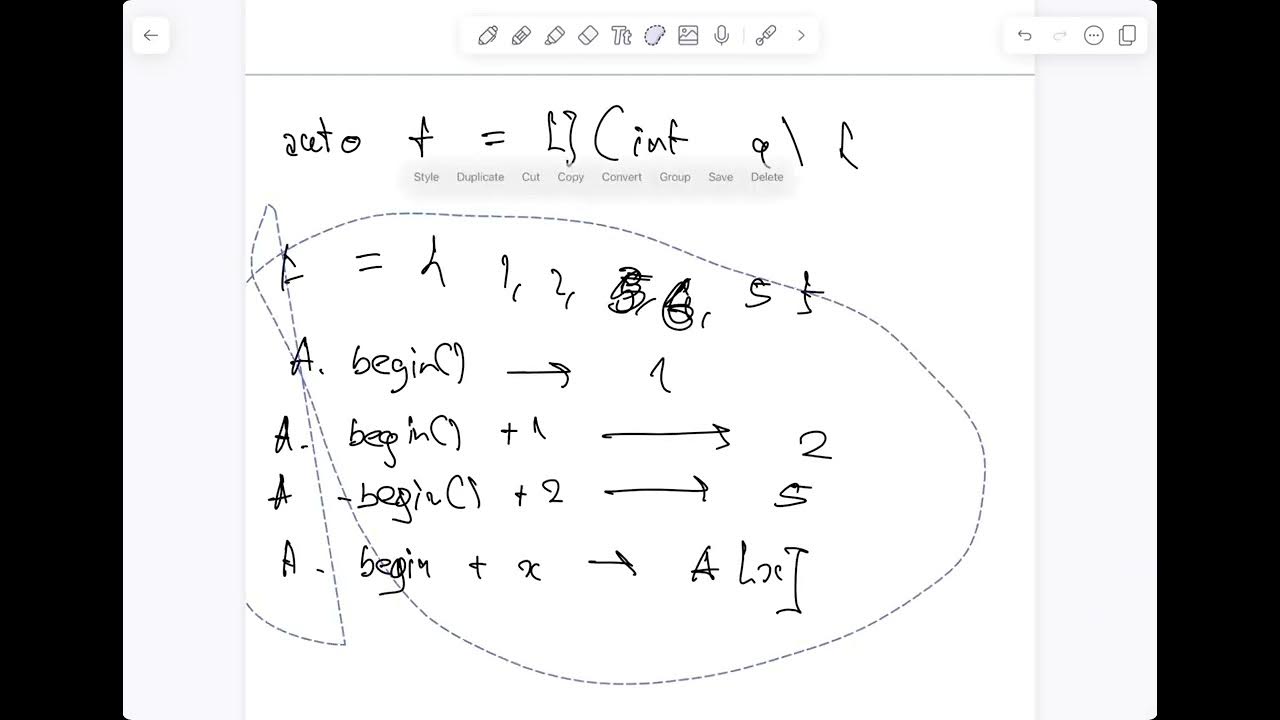 Style Duplicate Cut Copy Convert Group Save Delete
auto f = [](int a) {
= { 1, 2, 5 }
A. begin() → 1
A. begin() + 1 → 2
A .begin() + 2 → 5
A . begin + x → A [x]